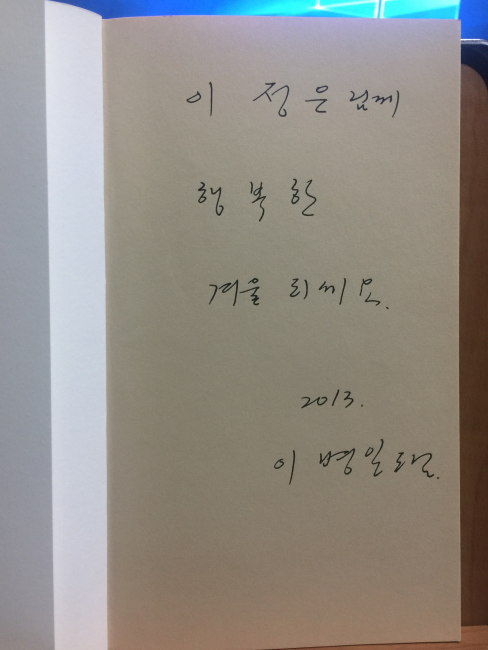 이 정은 님께
행복한
겨울 되세요.
2013.
이병일 드림.